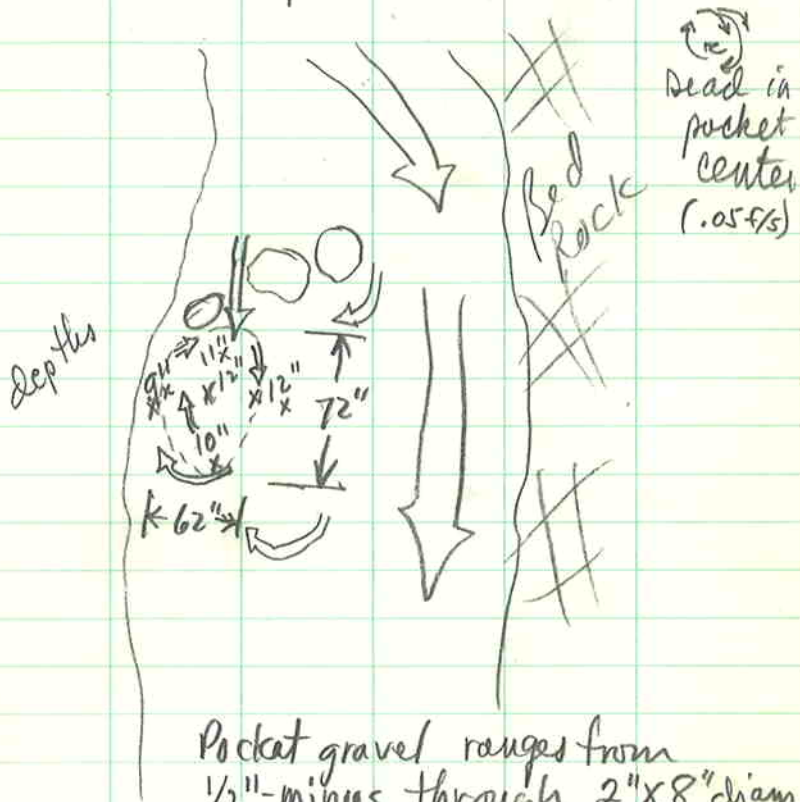 Dead in
pocket
center
(.05 f/s)
Bed
Rock
depths
9"
11"
12"
12"
72"
10"
62"
Pocket gravel ranges from
1/2"-minus through 2"x8" diam